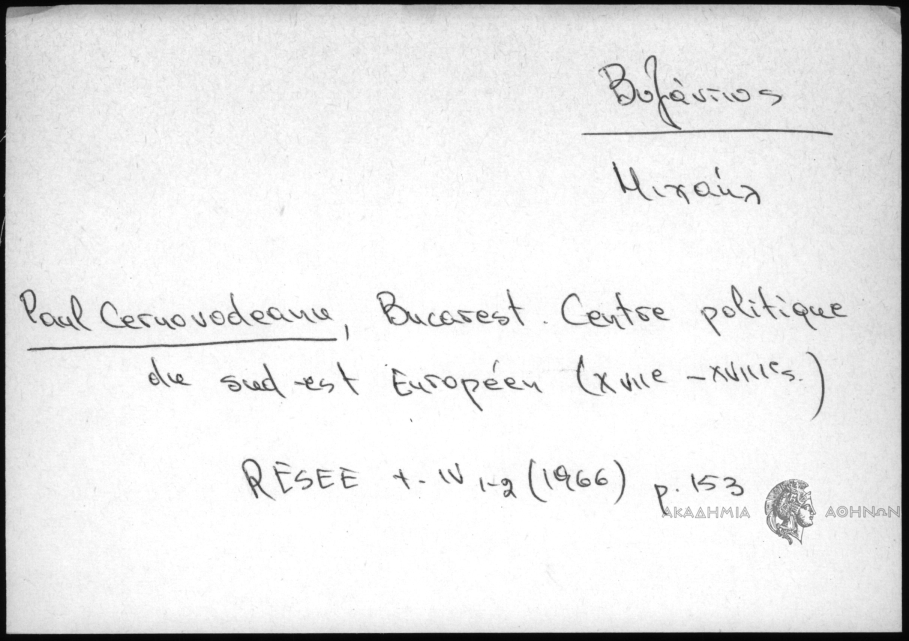 Βυζάντιος
Μιχαήλ
Paul Cernovodeanu, Bucarest. Centre politique
du sud-est Européen (XVIIe - XVIIIes.)
RESEE t. IV 1-2 (1966) p. 153
ΑΚΑΔΗΜΙΑ ΑΘΗΝΩΝ